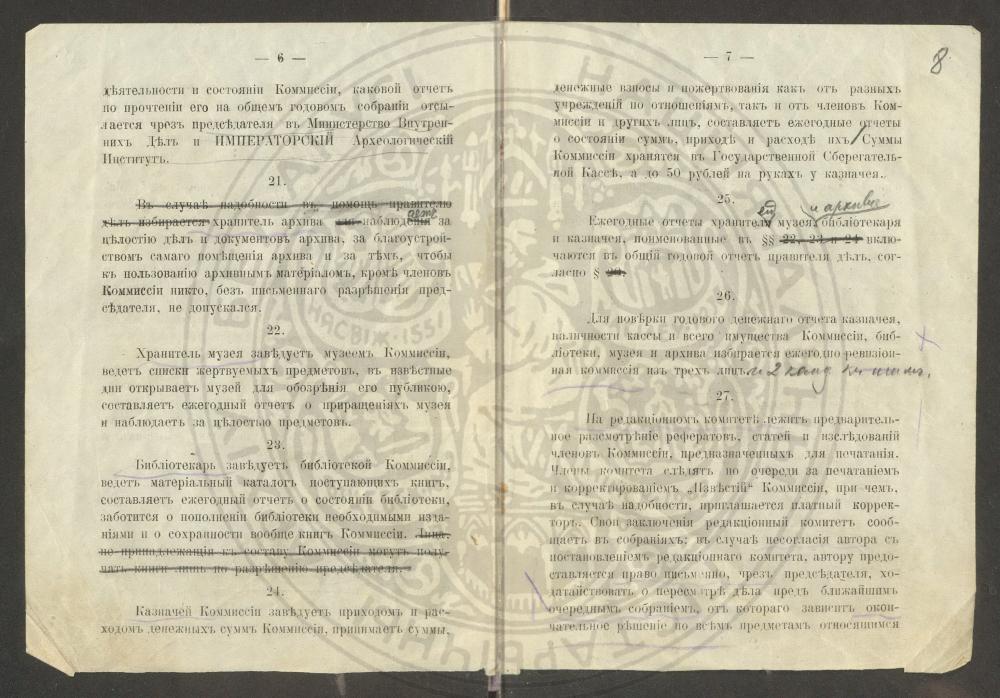 — 6 —
дѣятельности и состояніи Коммиссіи, каковой отчетъ
по прочтеніи его на общемъ годовомъ собраніи отсы-
лается чрезъ предсѣдателя въ Министерство Внутрен-
нихъ Дѣлъ и ИМПЕРАТОРСКІЙ Археологическій
Институтъ.
21.
Въ случаѣ надобности въ помощь правителю
дѣлъ избирается хранитель архива для наблюденія за
цѣлостію дѣлъ и документовъ архива, за благоустрой-
ствомъ самаго помѣщенія архива и за тѣмъ, чтобы
къ пользованію архивнымъ матеріаломъ, кромѣ членовъ
Коммиссіи никто, безъ письменнаго разрѣшенія пред-
сѣдателя, не допускался.
22.
Хранитель музея завѣдуетъ музеемъ Коммиссіи,
ведетъ списки жертвуемыхъ предметовъ, въ извѣстные
дни открываетъ музей для обозрѣнія его публикою,
составляетъ ежегодный отчетъ о приращеніяхъ музея
и наблюдаетъ за цѣлостью предметовъ.
23.
Библіотекарь завѣдуетъ библіотекой Коммиссіи,
ведетъ матеріальный каталогъ поступающихъ книгъ,
составляетъ ежегодный отчетъ о состояніи библіотеки,
заботится о пополненіи библіотеки необходимыми изда-
ніями и о сохранности вообще книгъ Коммиссіи. Лица,
не принадлежащія къ составу Коммиссіи могутъ полу-
чать книги лишь по разрѣшенію предсѣдателя.
24.
Казначей Коммиссіи завѣдуетъ приходомъ и рас-
ходомъ денежныхъ суммъ Коммиссіи, принимаетъ суммы,
8
— 7 —
денежные взносы и пожертвованія какъ отъ разныхъ
учрежденій по отношеніямъ, такъ и отъ членовъ Ком-
миссіи и другихъ лицъ, составляетъ ежегодные отчеты
о состояніи суммъ, приходѣ и расходѣ ихъ. Суммы
Коммиссіи хранятся въ Государственной Сберегатель-
ной Кассѣ, а до 50 рублей на рукахъ у казначея.
25.
и архива
Ежегодные отчеты хранителя музея, библіотекаря
и казначея, поименованные въ §§ 22, 23 и 24 вклю-
чаются въ общій годовой отчетъ правителя дѣлъ, сог-
ласно § 20.
26.
Для повѣрки годового денежнаго отчета казначея,
наличности кассы и всего имущества Коммиссіи, биб-
ліотеки, музея и архива избирается ежегодно ревизіон-
ная коммиссія изъ трехъ лицъ и 2 канд. къ нимъ.
27.
На редакціонномъ комитетѣ лежитъ предваритель-
ное разсмотрѣніе рефератовъ, статей и изслѣдованій
членовъ Коммиссіи, предназначенныхъ для печатанія.
Члены комитета слѣдятъ по очереди за печатаніемъ
и корректированіемъ „Извѣстій“ Коммиссіи, при чемъ,
въ случаѣ надобности, приглашается платный коррек-
торъ. Свои заключенія редакціонный комитетъ сооб-
щаетъ въ собраніяхъ; въ случаѣ несогласія автора съ
постановленіемъ редакціоннаго комитета, автору предо-
ставляется право письменно, чрезъ предсѣдателя, хо-
датайствовать о пересмотрѣ дѣла предъ ближайшимъ
очереднымъ собраніемъ, отъ котораго зависитъ окон-
чательное рѣшеніе по всѣмъ предметамъ относящимся